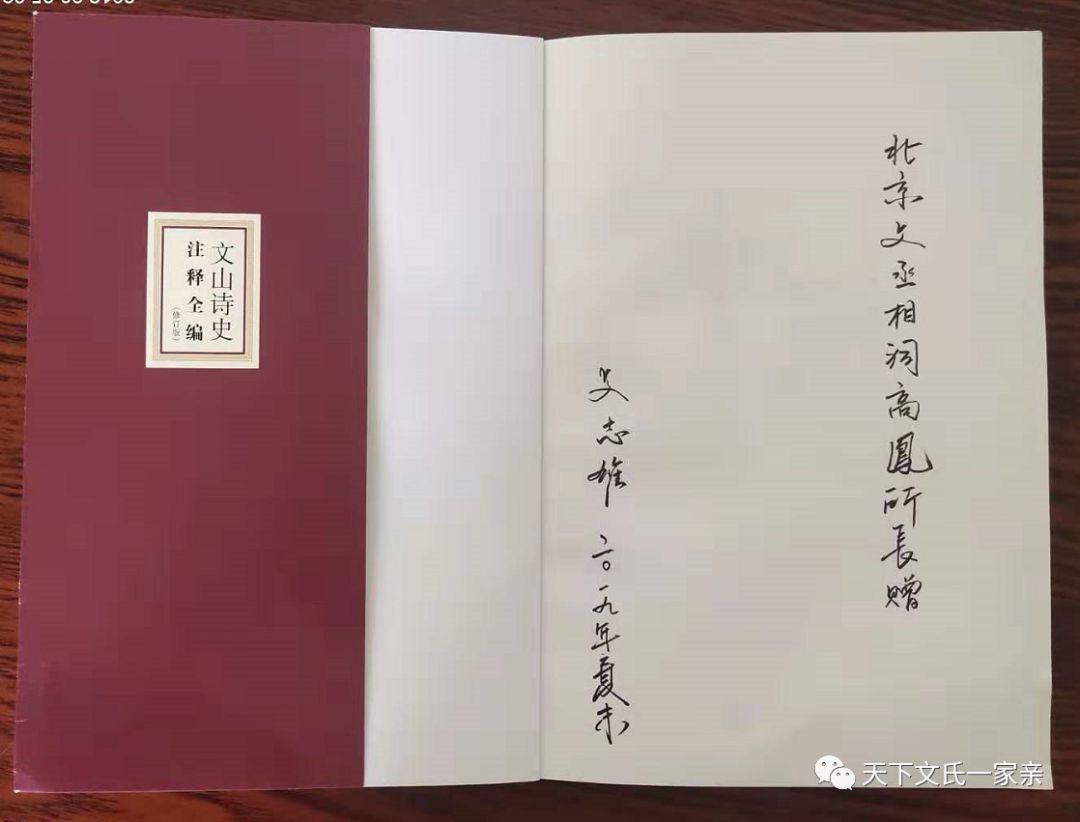 文山诗史
注释全编
(修订版)
北京文丞相祠高鳳所長赠
文志雄 二〇一九年夏末
天下文氏一家亲